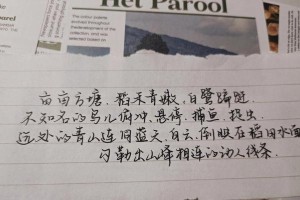 Het Parool
亩亩方塘、稻禾青嫩、白鹭蹁跹、
不知名的鸟儿俯冲、悬停、捕鱼、掠出、
远处的青山连同蓝天、白云、倒映在稻田水面
勾勒出山峰相连的动人线条、